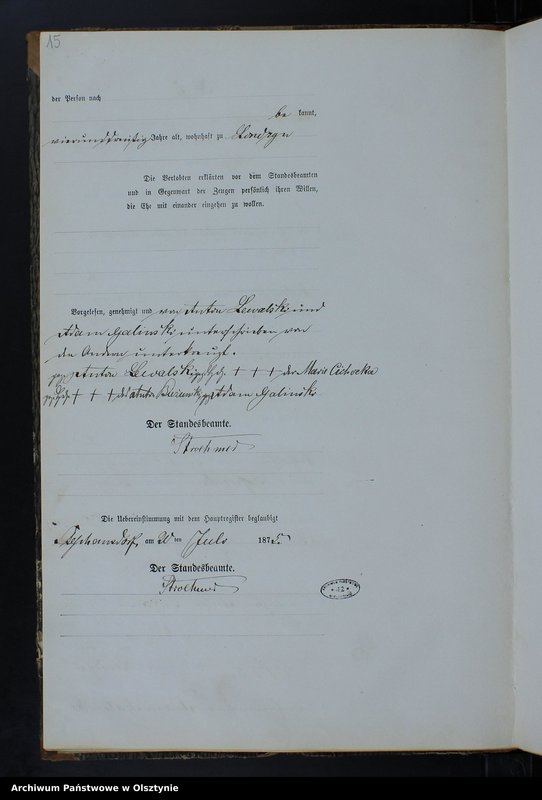 15
der Person nach
be kannt,
vierunddreißig Jahre alt, wohnhaft zu
Die Verlobten erklärten vor dem Standesbeamten
und in Gegenwart der Zeugen persönlich ihren Willen,
die Ehe mit einander eingehen zu wollen.
Vorgelesen, genehmigt und von Anton Lewalski und
Adam Galinski unterschrieben von
den Andern unterkreuzt.
Anton Lewalski + + + der Marie Cichocka
+ + + des Anton Adam Galinski
Der Standesbeamte.
Die Uebereinstimmung mit dem Hauptregister beglaubigt
am 20 ten Juli 1875
Der Standesbeamte.
Archiwum Państwowe w Olsztynie